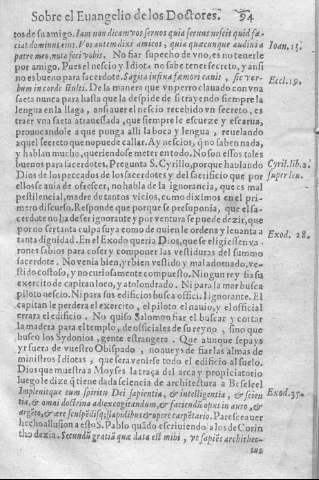 Sobre el Euangelio de los Doctores. 94
tos de su amigo. Iam non dicam vos seruos quia seruus nescit quid fa-
ciat dominus eius. Vos autem dixi amicos, quia quæcunque audiui a
patre meo, nota feci vobis. No fiar su pecho de vno, es no tenerle
por amigo. Pues el nescio y Idiota no sabe tener secreto, y ansi
no es bueno para sacerdote. Sagita infixa fæmori canis, sic ver-
bum in corde stulti. De la manera que vn perro clauado con vna
saeta nunca para hasta que la despide de si trayendo siempre la
lengua en la llaga, ansi auer el nescio recebido vn secreto, es
traer vna saeta atrauessada, que siempre le escueze y escarua,
prouocandole a que ponga alli la boca y lengua, reuelando
aquel secreto que no puede callar. Ay nescios, q̃ no saben nada,
y hablan mucho, queriendose meter en todo. No son estos tales
buenos para sacerdotes. Pregunta S. Cyrillo, porque hablando
Dios de los peccados de los sacerdotes y del sacrificio que por
ellos se auia de ofrescer, no habla de la ignorancia, que es mal
pestilencial, madre de tantos vicios, como diximos en el pri-
mero discurso. Responde que porque se presuponia, que el sa-
cerdote no ha de ser ignorante y por ventura se puede dezir, que
por no ser tanta culpa suya como de quien le ordena y leuanta a
tanta dignidad. En el Exodo queria Dios, que se eligiessen va-
rones sabios para coser y componer las vestiduras del summo
sacerdote. No venia bien, yr bien vestido, y mal adornado, ve-
stido costoso, y no curiosamente compuesto. Ningun rey fia su
exercito de capitan loco, y atolondrado. Ni para la mar busca
piloto nescio. Ni para sus edificios busca official ignorante. El
capitan le perdera el exercito, el piloto el nauio, y el official
errara el edificio. No quiso Salomon fiar el buscar y cortar
la madera para el templo, de officiales de su reyno, sino que
busco los Sydonios, gente estrangera. Que aunque sepays
yr fuera de vuestro Obispado, no aueys de fiar las almas de
ministros Idiotas, que sera venirse todo el edificio al suelo.
Dios que muestra a Moyses la traça del arca y propiciatorio
luego le dize q̃ tiene dada sciencia de architectura a Beseleel
Impleuitque eum spiritu Dei sapientia, & intelligentia, & scien
tia, & omni doctrina ad excogitandum, & faciendũ opus in auro, &
argẽto, & ære sculpẽdisq; lapidibus & opere carpẽtario. Paresce auer
hecho allusion a esto S. Pablo quãdo escriuiendo a los de Corin
tho dezia. Secundũ gratiã quæ data est mihi, vt sapiẽs architec-
tus
Ioan. 15.
Eccl. 19.
Cyril. lib. 2.
super leu.
Exod. 28.
Exod. 35.